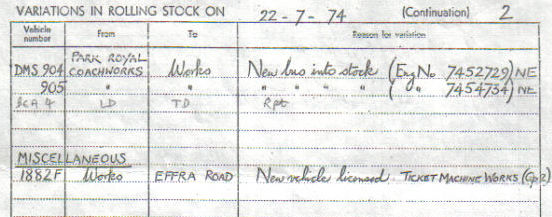 VARIATIONS IN ROLLING STOCK ON 22-7-74 (Continuation) 2
Vehicle number From To Reason for variation
DMS 904 PARK ROYAL COACHWORKS Works New bus into stock (Eng No 7452729) NE
905 " " " " " " (" 7454734) NE
BCA 4 LD TD Rpt
MISCELLANEOUS
1882F Works EFFRA ROAD New vehicle licensed TICKET MACHINE WORKS (Gp 2)